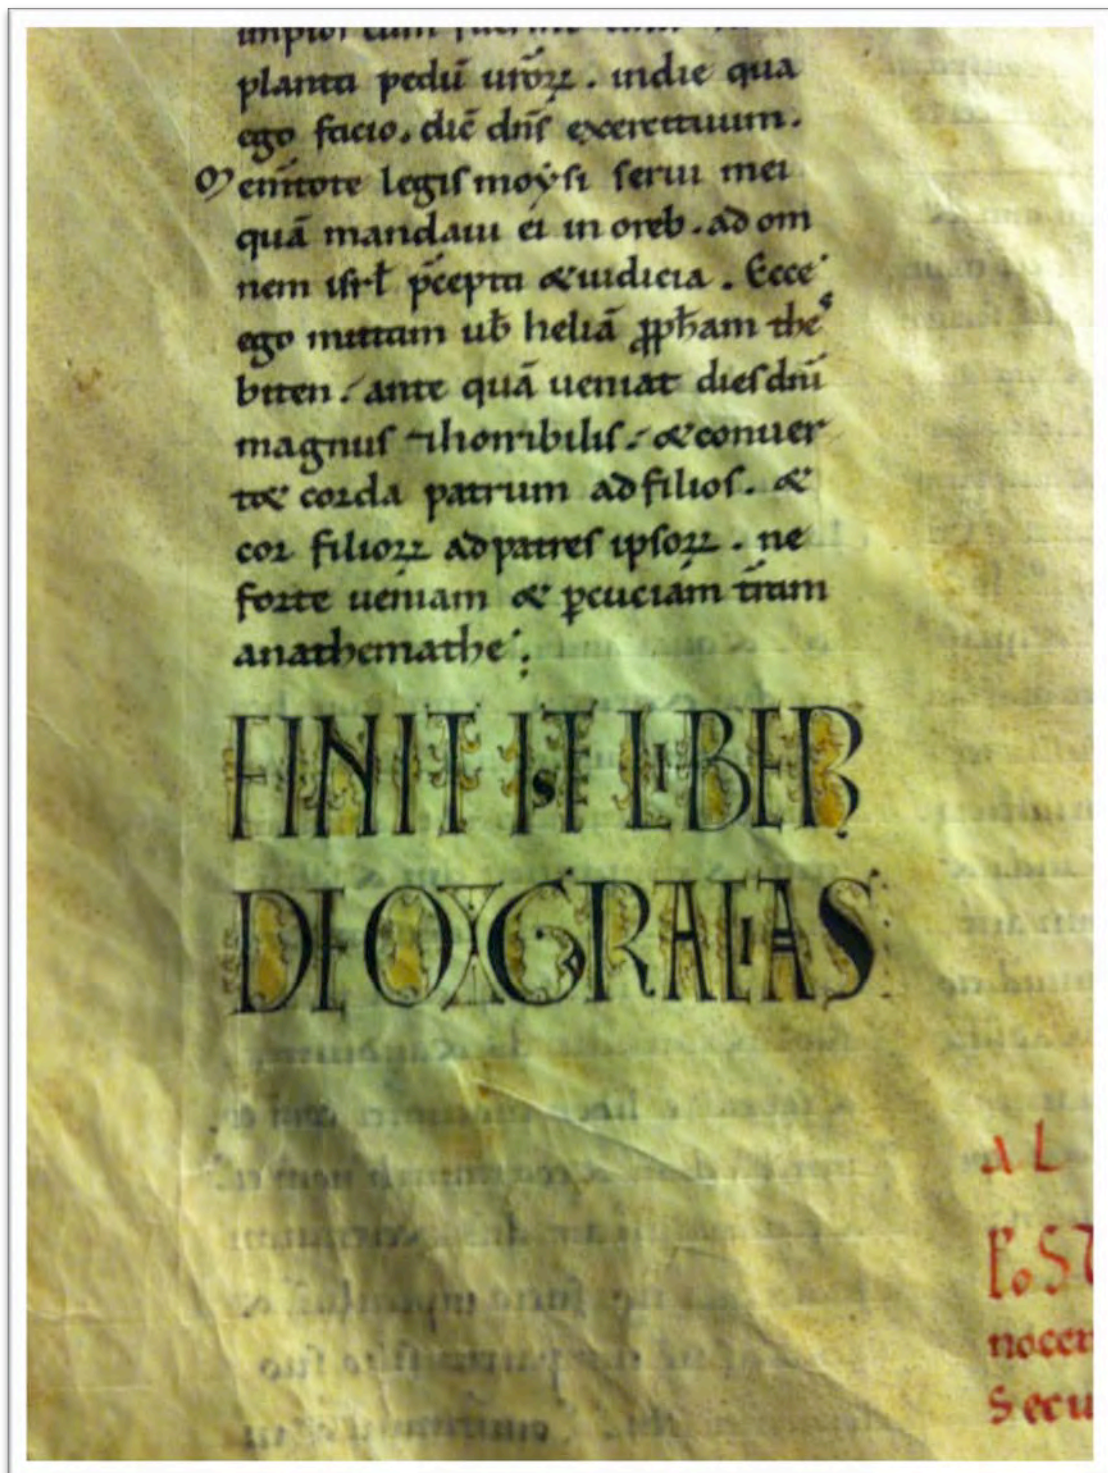 planta pedū ur̄oꝝ. in die qua
ego facio. dic̄ dn̄s exercituum.
Mem̄tote legis moẏsi serui mei
quā mandaui ei in oreb. ad om
nem isrl̄ p̄cepta & iudicia. Ecce
ego mittam ub̄ heliā ꝓph̄am thes
biten. ante quā ueniat dies dn̄i
magnus ⁊ horribilis. & conuer
t& corda patrum ad filios. &
cor filioꝝ ad patres ipsoꝝ. ne
forte ueniam & ꝑcuciam t̄ram
anathemathe.
FINIT IST LIBER
DEO GRACIAS
AL
POST
nocen
Secu